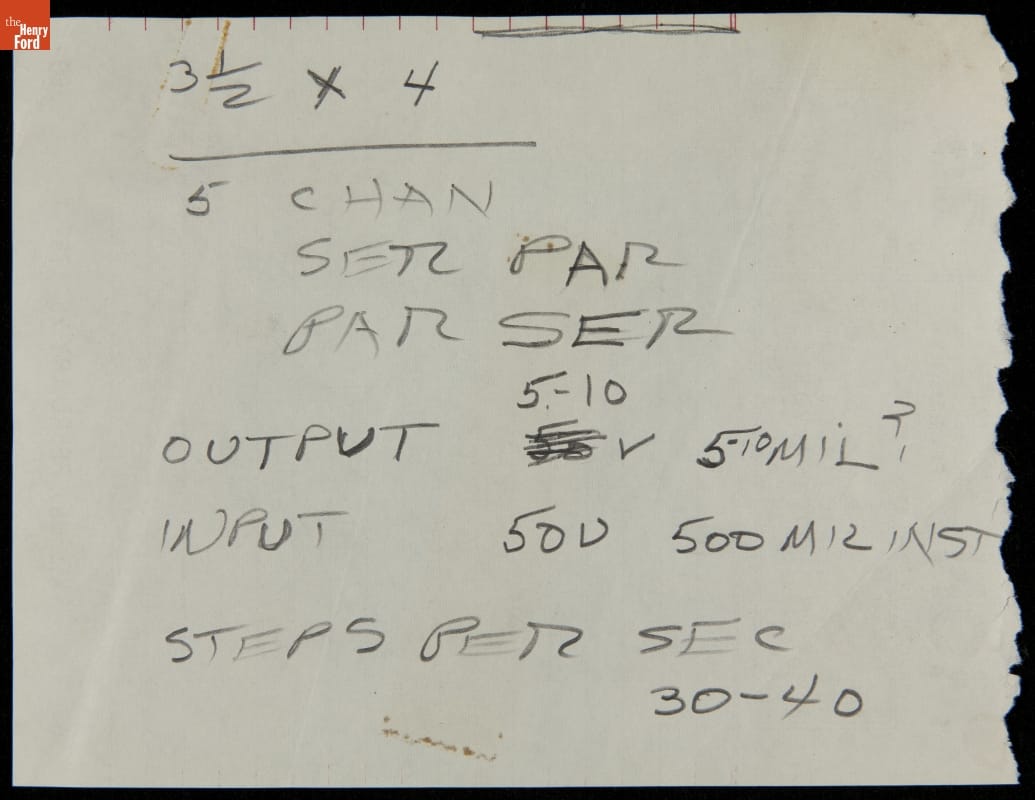 the
Henry
Ford
3 1/2 X 4
5 CHAN
SER PAR
PAR SER
5-10
OUTPUT V 5-10 MIL ?
INPUT 50V 500 MIL INST
STEPS PER SEC
30-40